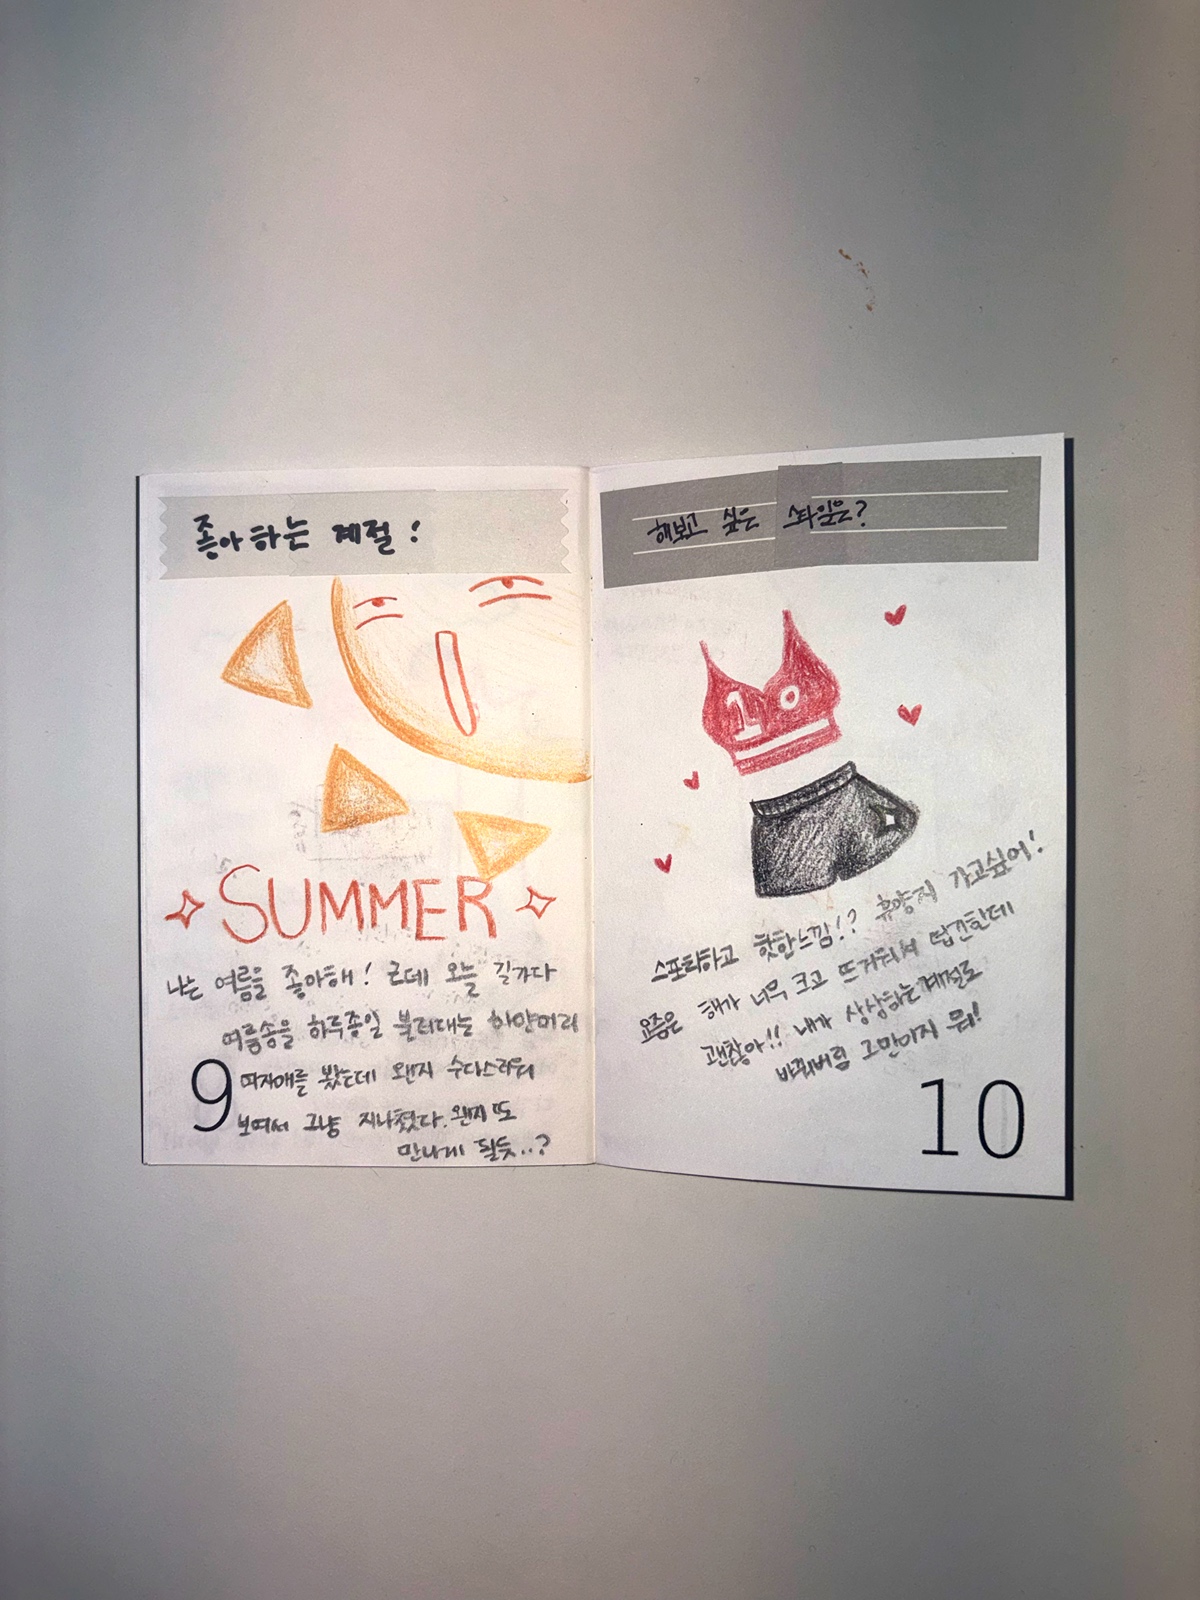 좋아하는 계절!
SUMMER
나는 여름을 좋아해! 근데 오늘 길가다
여름송을 하루종일 불러대는 하얀머리
여자애를 봤는데 왠지 수다스러워
보여서 그냥 지나쳤다. 왠지 또
만나게 될듯..?
9
해보고 싶은 스타일은?
10
스포티하고 핫한느낌!? 휴양지 가고싶어!
요즘은 해가 너무 크고 뜨거워서 땀간한데
괜찮아!! 내가 상상하는 계절로
바꿔버림 그만이지 뭐!
10